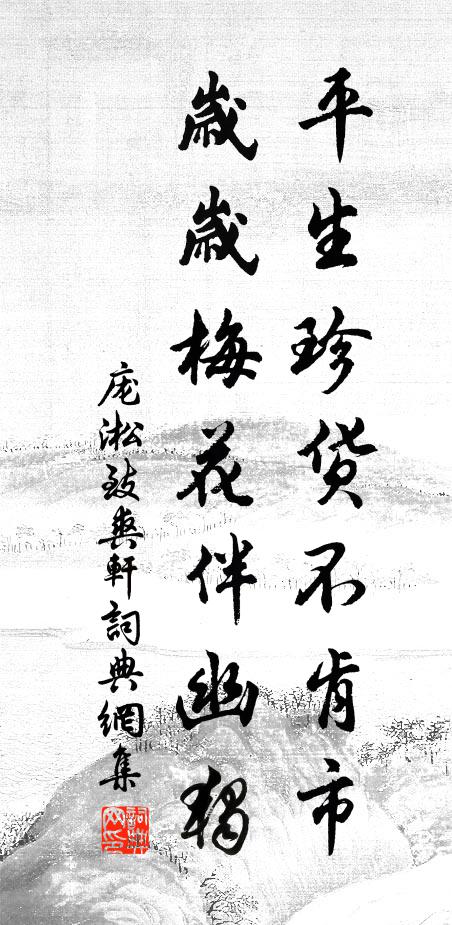 平生珍货不肯市
歲歲梅花伴幽獨
庞淞致爽軒詞典網集